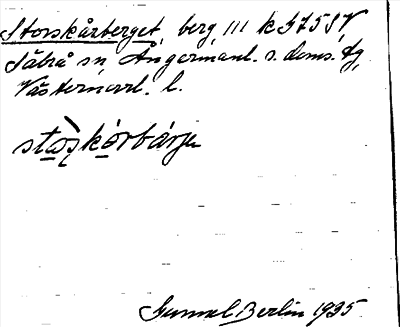 Storskårberget, berg, III k 375 SV
Säbrå sn Ångermanl. s. doms. tg
Västernorrl. l.
Gunnel Berlin 1935